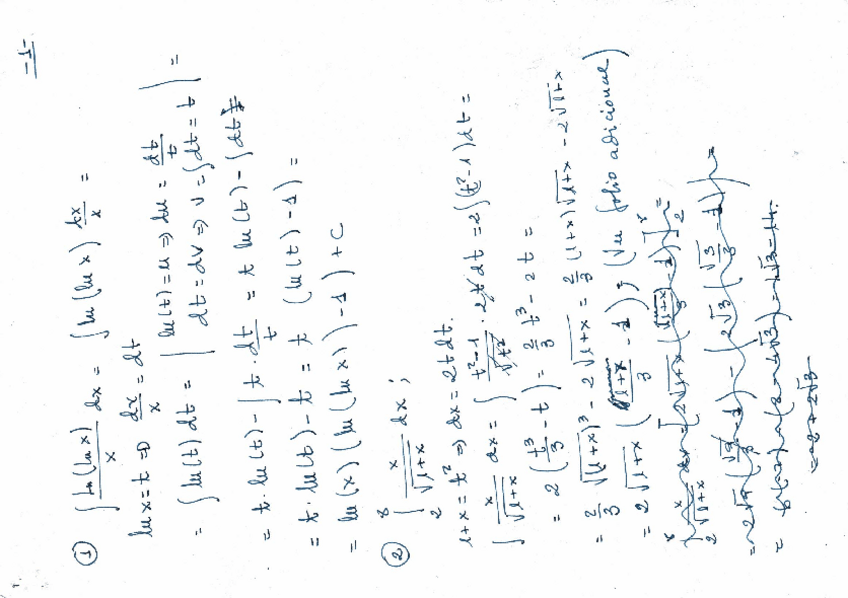 -1-
① ∫ ln(ln x)/x dx = ∫ ln(ln x) dx/x =
ln x = t ⇒ dx/x = dt
= ∫ ln(t) dt = | ln(t) = u ⇒ du = dt/t
dt = dv ⇒ v = ∫ dt = t | =
= t · ln(t) - ∫ t · dt/t = t ln(t) - ∫ dt =
= t · ln(t) - t = t (ln(t) - 1) =
= ln(x) (ln(ln x)) - 1) + C
② ∫₂⁸ x/√(1+x) dx ;
1+x = t² ⇒ dx = 2t dt.
∫ x/√(1+x) dx = ∫ (t²-1)/√t² · 2t dt = 2∫(t²-1) dt =
= 2 (t³/3 - t) = 2/3 t³ - 2t =
= 2/3 √(1+x)³ - 2√(1+x) = 2/3 (1+x)√(1+x) - 2√(1+x)
= 2√(1+x) ((1+x)/3 - 1) ; (Ver folio adicional)